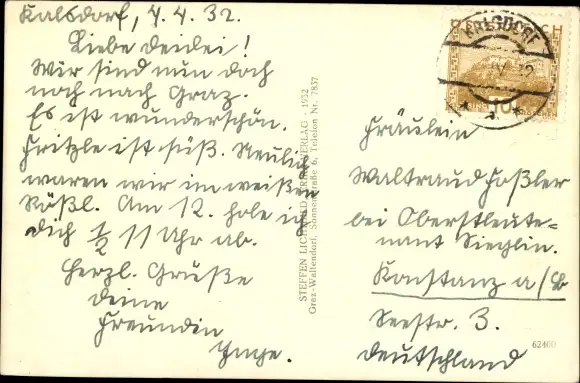 Kalsdorf, 4.4.32.
Liebe Deidei!
Wir sind nun doch
noch nach Graz.
Es ist wunderschön.
Fritzle ist süß. Neulich
waren wir im weißen
Rößl. Am 12. hole ich
Dich ½ 11 Uhr ab.
Herzl. Grüße
Deine
Freundin
Inge.
STEFFEN LICHTBILD VERLAG · 1932
Graz-Waltendorf, Sonnenstraße 6, Telefon Nr. 7837
KALSDORF
10
Fräulein
Waltraud Foßler
bei Oberstleute-
nant Sieglin.
Konstanz a/B
Seestr. 3.
Deutschland
62400